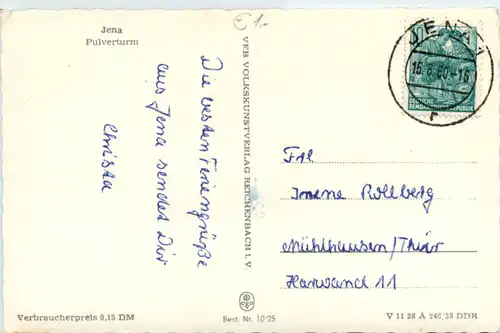 Jena
Pulverturm
€ 1.-
Die besten Feriengrüße
aus Jena sendet Dir
Christa
VEB VOLKSKUNSTVERLAG REICHENBACH I. V.
JENA 1
16.8.60.-16
r
DEUTSCHE
DEMOKRATISCHE REPUBLIK
Frl
Irene Rollberg
Mühlhausen/Thür
Harwand 11
Verbraucherpreis 0,15 DM
Best. Nr. 10/25
V 11 28 A 246/59 DDR